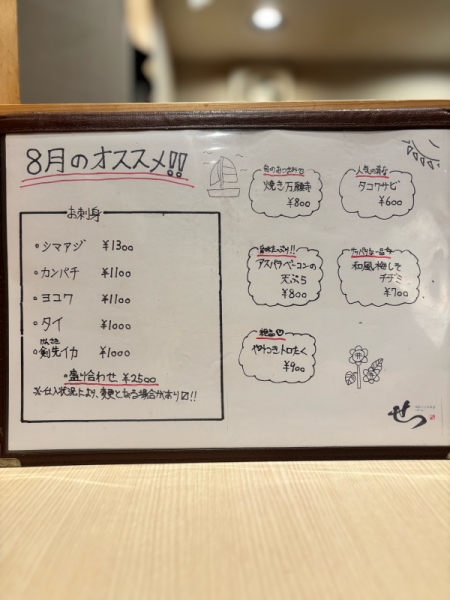 8月のオススメ!!
お刺身
・シマアジ ¥1300
・カンパチ ¥1100
・ヨコワ ¥1100
・タイ ¥1000
・剣先イカ ¥1000
・盛り合わせ ¥2500
※仕入状況により、変更となる場合があり〼!!
焼き万願寺
¥800
人気の
タコワサビ
¥600
アスパラベーコンの
天ぷら
¥800
和風梅しそ
チヂミ
¥700
絶品♡
やみつきトロたく
¥900
せつ